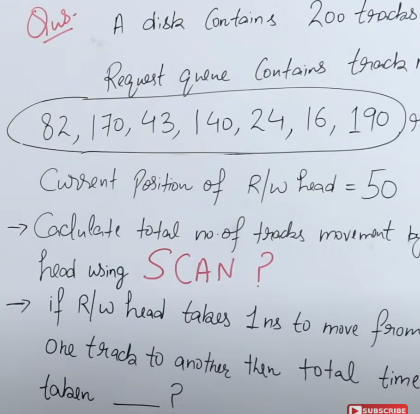 Qus. A disk Contains 200 tracks
Request queue Contains track
82, 170, 43, 140, 24, 16, 190
Current Position of R/W head = 50
→ Caclulate total no. of tracks movement by
head using SCAN ?
→ if R/W head takes 1 ns to move from
one track to another then total time
taken ___ ?
SUBSCRIBE